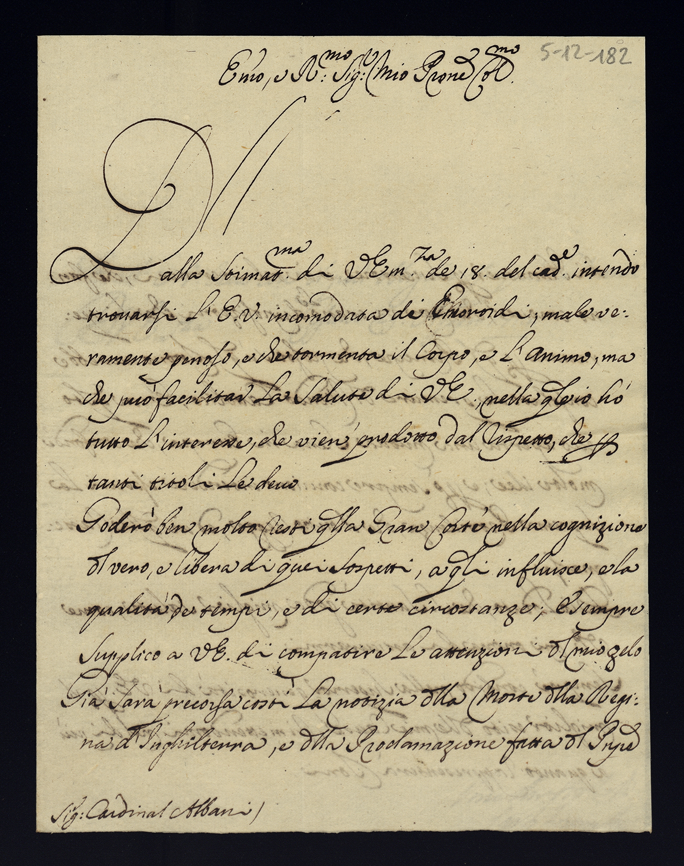 5-12-182
Em̃o, e R.mo Sig.r Mio Prone Col.mo
Dalla Stimat.ma di V. Em.za de 18. del cad.e intendo
trovarsi l'E.V. incomodata di Emoroidi, male ve-
ramente penoso, e che tormenta il Corpo, e l'animo, ma
che può facilitar la Salute di V.E., nella qle io hò
tutto l'interesse, che vien prodotto dal rispetto, che p
tanti titoli Le devo
Goderò ben molto resti qlla Gran Corte nella cognizione
dl vero, e libera di quei sospetti, a qli influisce, e la
qualità de tempi, e di certe circostanze; E sempre
supplico a V.E. di compatire le attenzioni dl mio zelo
Già sarà precorsa costì la notizia dlla Morte dlla Regi-
na d'Inghilterra, e dlla Proclamazione fatta dl
Sig: Cardinal Albani